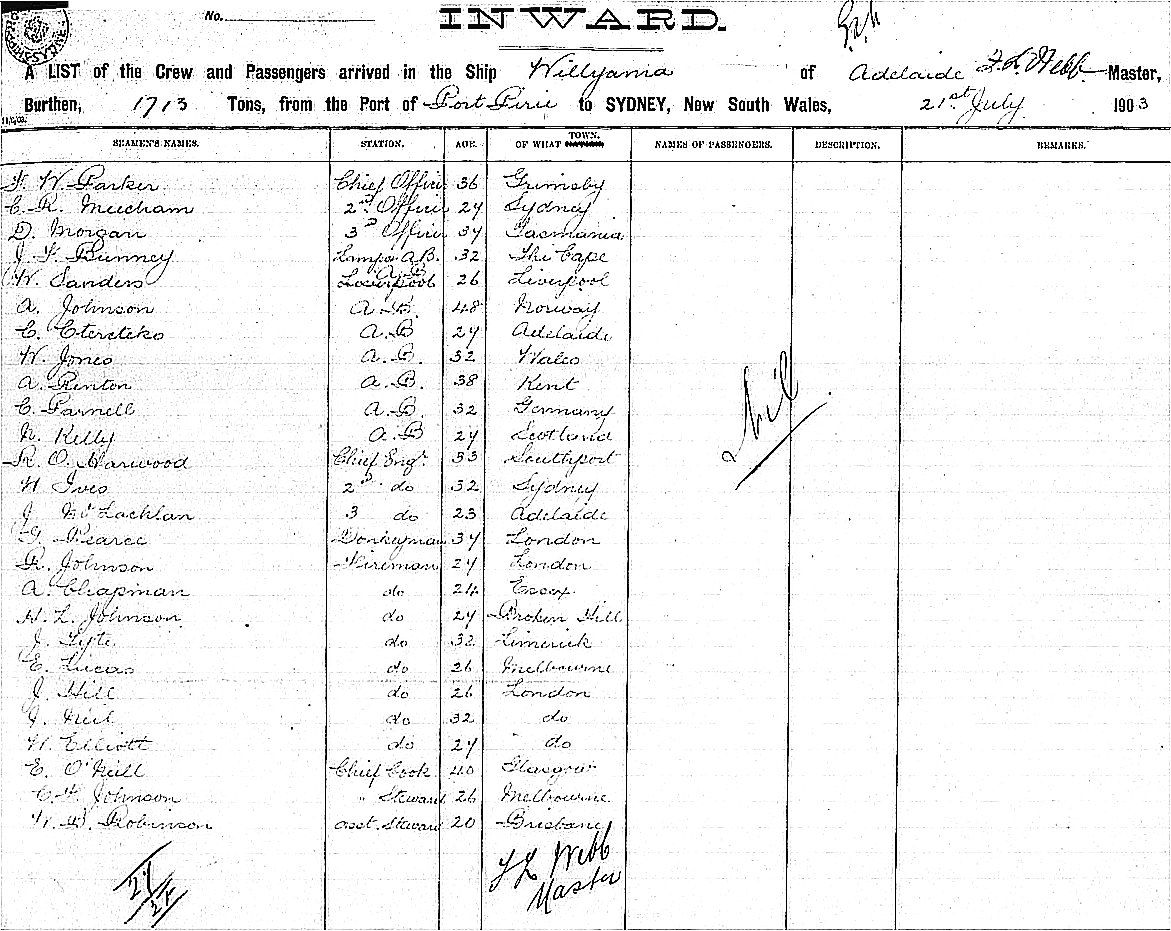 No.
INWARD.
A LIST of the Crew and Passengers arrived in the Ship Willyama of Adelaide F. L. Webb Master,
Burthen, 1713 Tons, from the Port of Port Pirie to SYDNEY, New South Wales, 21st July 1903
SEAMEN'S NAMES. STATION. AGE. OF WHAT TOWN. NAMES OF PASSENGERS. DESCRIPTION. REMARKS.
F. W. Parker Chief Officer 36 Grimsby
C. R. Meecham 2nd Officer 27 Sydney
D. Morgan 3rd Officer 37 Tasmania
J. F. Bunney Lamps A.B. 32 The Cape
W. Sanders Liverpool A.B 26 Liverpool
A. Johnson A.B. 48 Norway
C. A.B 27 Adelaide
W. Jones A.B. 32 Wales
A. Renton A.B. 38 Kent
C. Parnell A.B. 32 Germany
N. Kelly A.B 27 Scotland
R. O. Harwood Chief Engr. 33 Southport
H Ives 2nd do 32 Sydney
J McLachlan 3 do 23 Adelaide
G. Pearce Donkeyman 37 London
R. Johnson Fireman 27 London
A. Chapman do 24 Essex
H. L. Johnson do 27 Broken Hill
J. Fyfe do 32 Limerick
E. Lucas do 26 Melbourne
J. Hill do 26 London
J. Neil do 32 do
H. Elliott do 27 do
E. O'Neill Chief Cook 40 Glasgow
C. F. Johnson " Steward 26 Melbourne
W. B. Robinson asst. Steward 20 Brisbane
Nil
27
F L Webb
Master